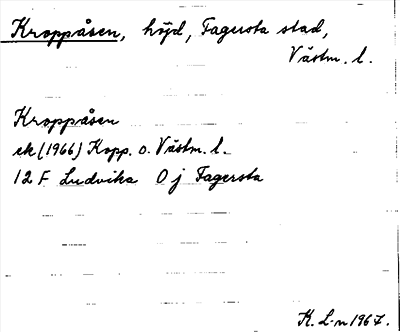 Kroppåsen, höjd, Fagersta stad,
Västm. l.
Kroppåsen
ek (1966) Kopp. o. Västm. l.
12 F Ludvika 0 j Fagersta
K. L-n 1967.